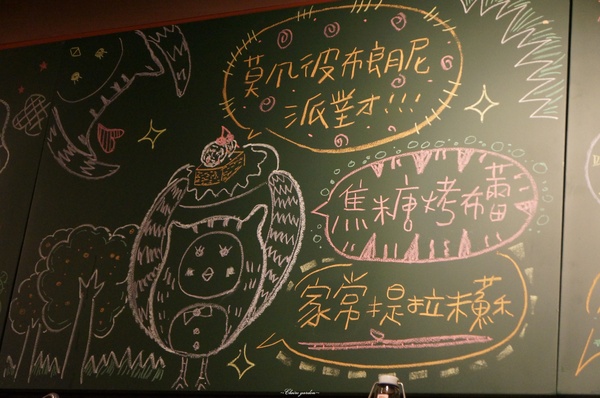 莫爪彼布朗尼
派對才!!!
焦糖烤布蕾
家常提拉米蘇
~Claire garden~